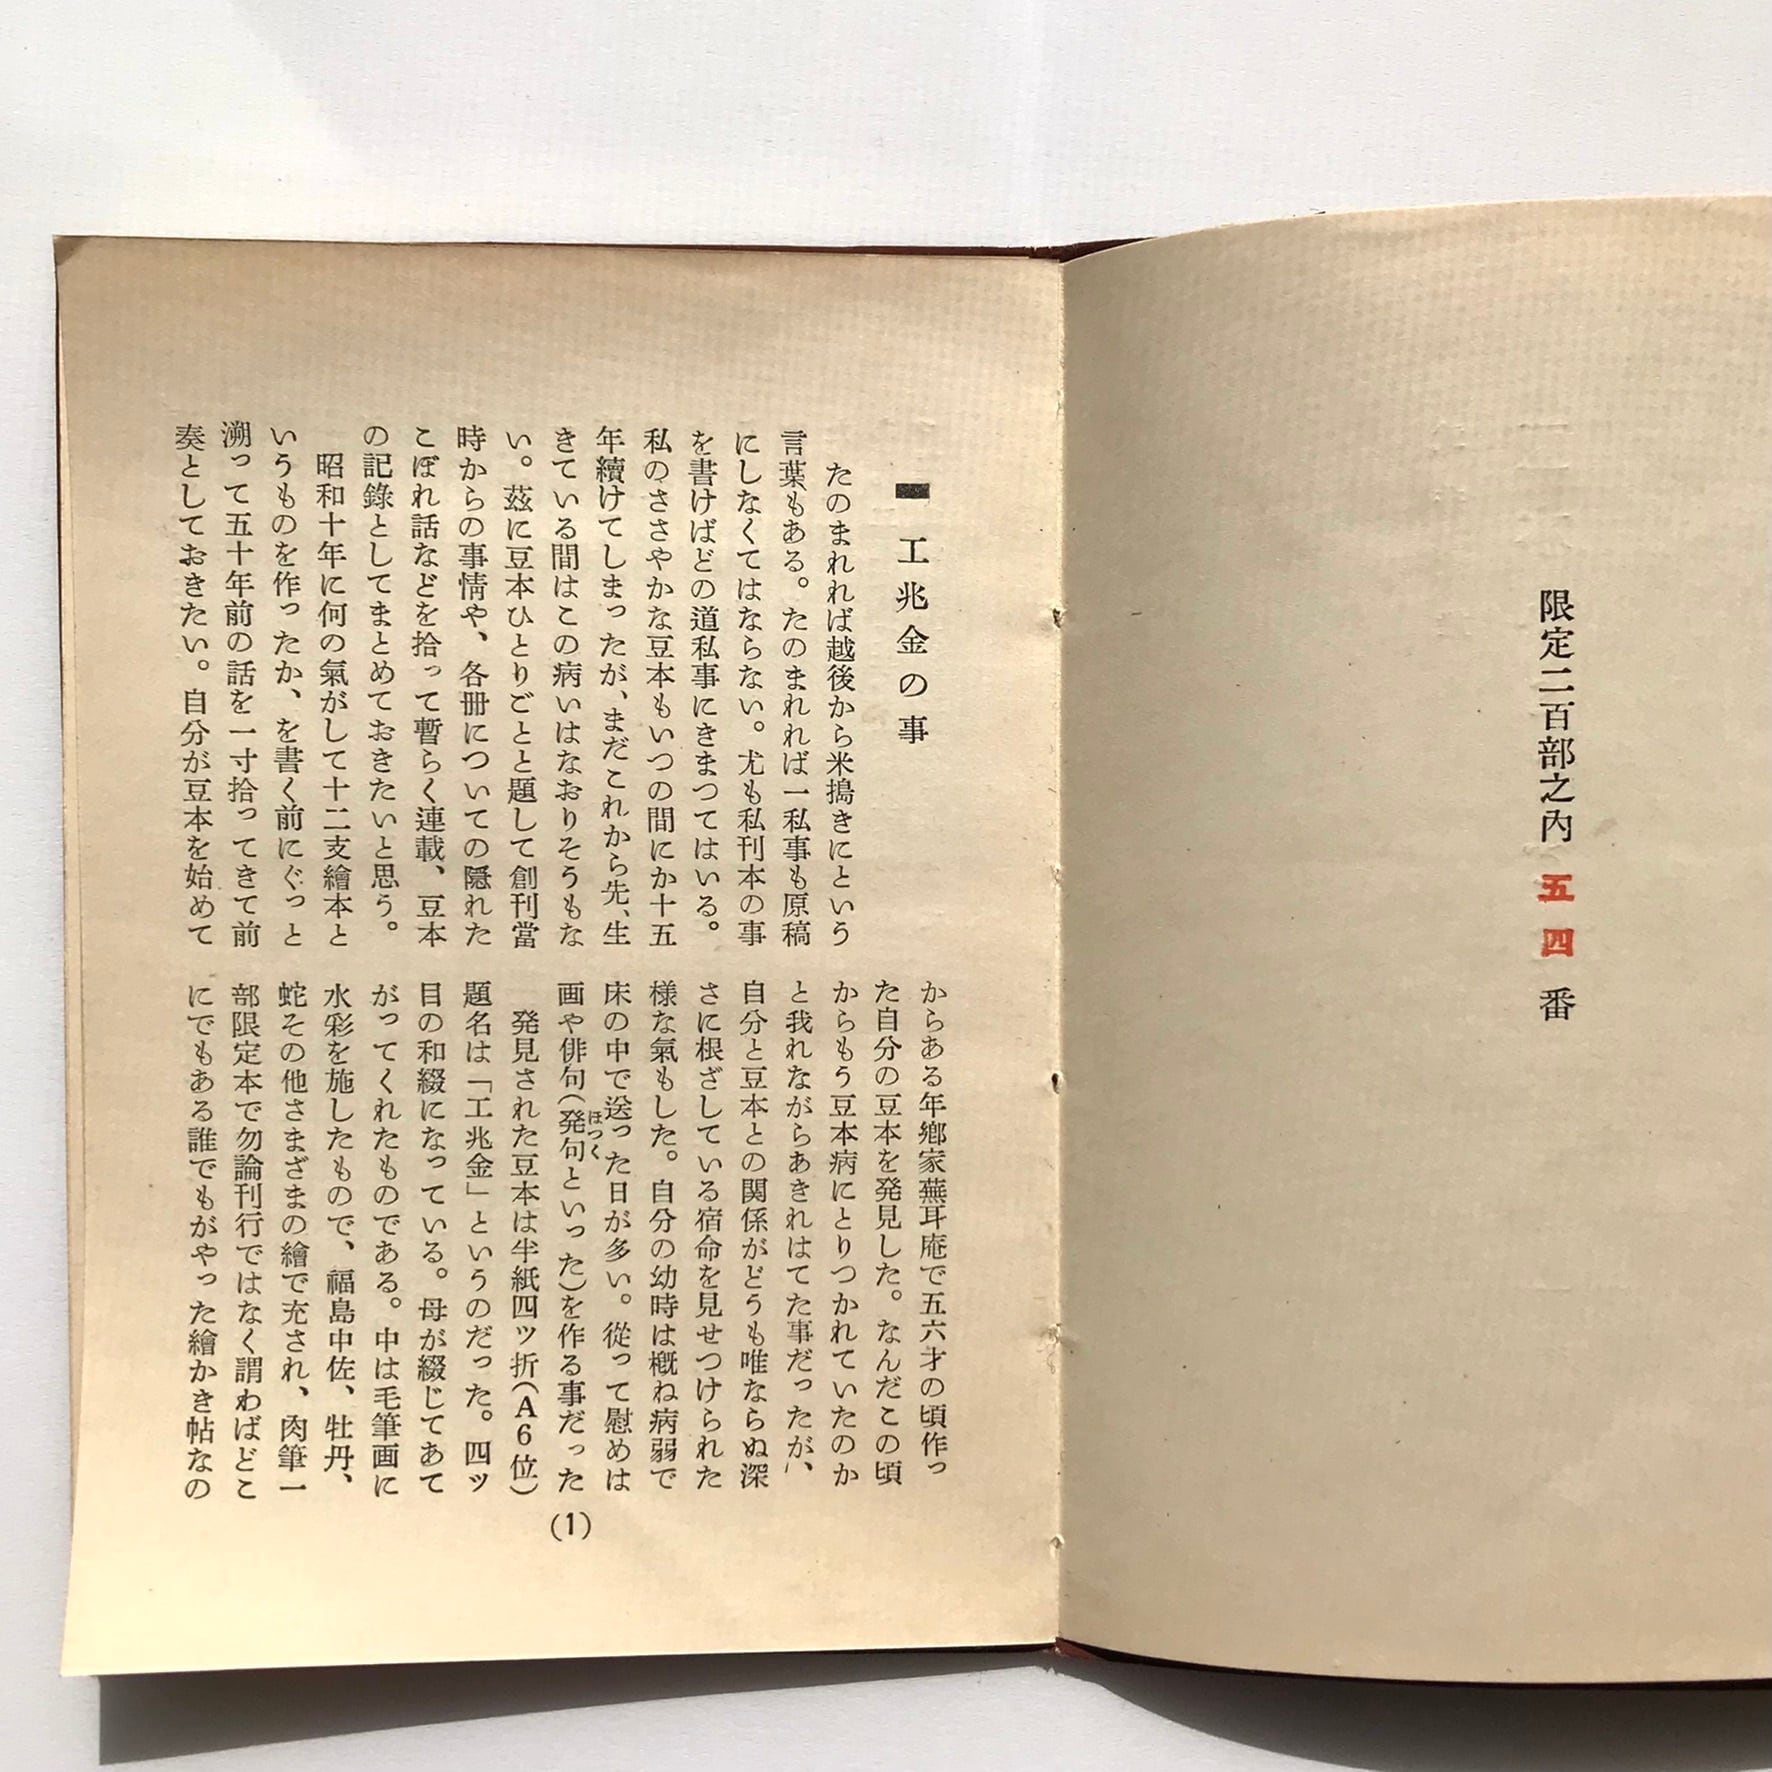 限定二百部之內 五四 番
工兆金の事
たのまれれば越後から米搗きにという
言葉もある。たのまれれば一私事も原稿
にしなくてはならない。尤も私刊本の事
を書けばどの道私事にきまつてはいる。
私のささやかな豆本もいつの間にか十五
年續けてしまったが、まだこれから先、生
きている間はこの病いはなおりそうもな
い。茲に豆本ひとりごとと題して創刊當
時からの事情や、各冊についての隠れた
こぼれ話などを拾って暫らく連載、豆本
の記錄としてまとめておきたいと思う。
昭和十年に何の氣がして十二支繪本と
いうものを作ったか、を書く前にぐっと
溯って五十年前の話を一寸拾ってきて前
奏としておきたい。自分が豆本を始めて
からある年鄕家蕪耳庵で五六才の頃作っ
た自分の豆本を発見した。なんだこの頃
からもう豆本病にとりつかれていたのか
と我れながらあきれはてた事だったが、
自分と豆本との関係がどうも唯ならぬ深
さに根ざしている宿命を見せつけられた
様な氣もした。自分の幼時は概ね病弱で
床の中で送った日が多い。従って慰めは
画や俳句(発句といった)を作る事だった
ほっく
発見された豆本は半紙四ッ折(A6位)
題名は「工兆金」というのだった。四ッ
目の和綴になっている。母が綴じてあて
がってくれたものである。中は毛筆画に
水彩を施したもので、福島中佐、牡丹、
蛇その他さまざまの繪で充され、肉筆一
部限定本で勿論刊行ではなく謂わばどこ
にでもある誰でもがやった繪かき帖なの
(1)